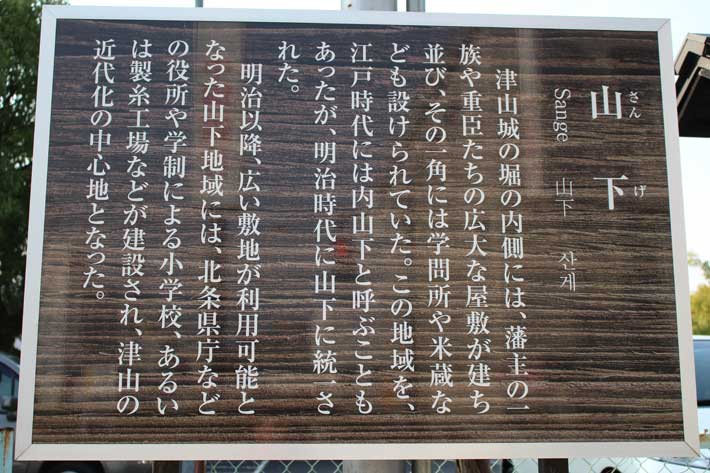 山下
さんげ
Sange 山下 산게
津山城の堀の内側には、藩主の一
族や重臣たちの広大な屋敷が建ち
並び、その一角には学問所や米蔵な
ども設けられていた。この地域を、
江戸時代には内山下と呼ぶことも
あったが、明治時代に山下に統一さ
れた。
明治以降、広い敷地が利用可能と
なった山下地域には、北条県庁など
の役所や学制による小学校、あるい
は製糸工場などが建設され、津山の
近代化の中心地となった。